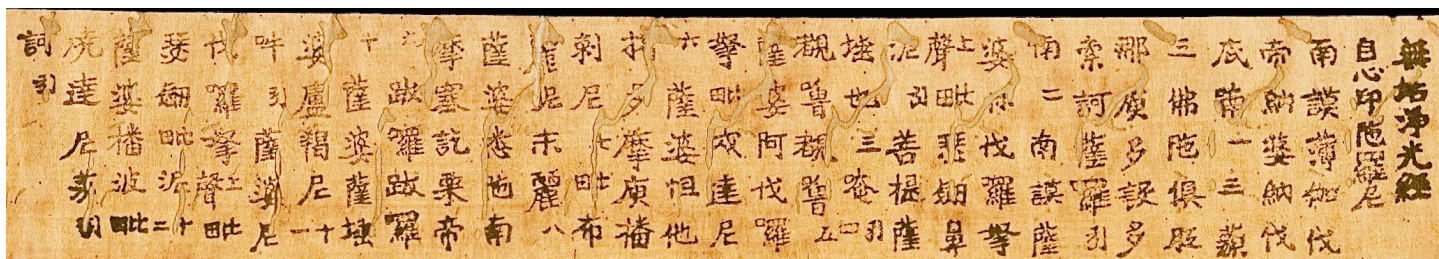 無垢淨光經
自心印陀羅尼
南謨薄伽伐
帝納婆納伐
底喃一三藐
三佛陀俱胝
那庾多設多
索訶薩羅引
喃二南謨薩
婆你伐羅拏
上聲毗瑟劒鼻
泥引菩提薩
埵也三唵引四
覩嚕覩嚕五
薩婆阿伐羅
拏毗戍達尼
六薩婆怛他
揭多摩庾播
剌尼七毗布
麗昵末麗八
薩婆悉地南
摩塞訖栗帝
九跋羅跋羅
十薩婆薩埵
婆盧羯尼十一
吽引薩婆尼
伐羅拏上聲毗
瑟劒毗泥十二
薩婆播波毗
燒達尼莎引
訶引